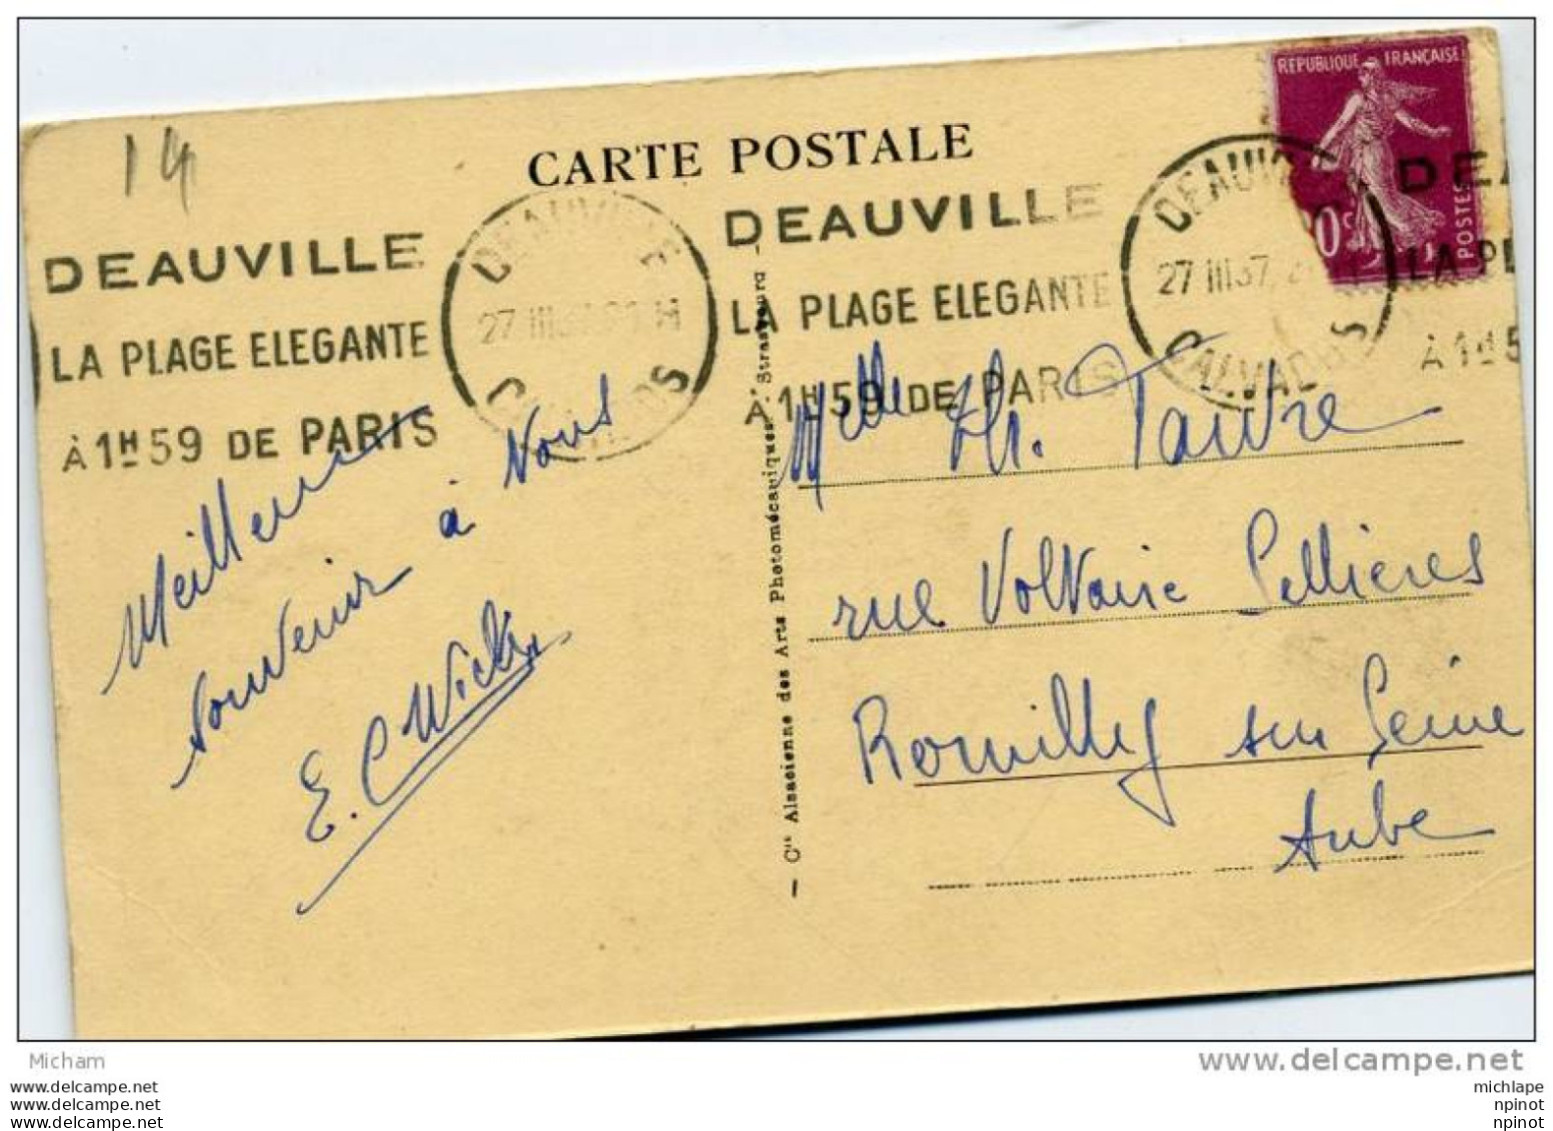 14
CARTE POSTALE
REPUBLIQUE FRANÇAISE
POSTES
0c
DEAUVILLE
LA PLAGE ELEGANTE
À 1H59 DE PARIS
DEAUVILLE
27 III 37
CALVADOS
DEAUVILLE
LA PLAGE ELEGANTE
À 1H59 DE PARIS
DEAUVILLE
27 III 37
CALVADOS
DEA
LA PL
À 1H5
Meilleur
souvenir à vous
E. C Wick
— Cie Alsacienne des Arts Photomécaniques, Strasbourg —
Melle Th.
rue Voltaire Sellieres
Romilly sur Seine
Aube
Micham
www.delcampe.net
www.delcampe.net
www.delcampe.net
www.delcampe.net
michlape
npinot
npinot